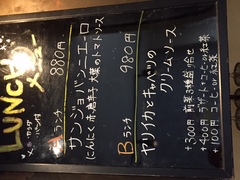 LUNCH
メニュー
サラダ
パン付
Aランチ 880円
サンジョバンニエーロ
にんにく 赤唐辛子 大葉のトマトソース
Bランチ 980円
ヤリイカとキャベツの
クリームソース
+300円 前菜3種盛り合せ
+400円 デザート+コーヒーor紅茶
+100円 コーヒーor紅茶